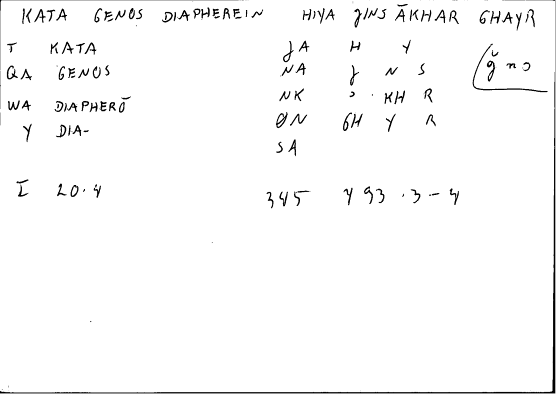 KATA GENOS DIAPHEREIN HIYA ǦINS ĀKHAR GHAYR
T KATA ǦA H Y ǧ n s
QA GENOS NA Ǧ N S
WA DIAPHERŌ NK ʾ · KH R
Y DIA- ØN GH Y R
SA
I 20.4 345 493.3-4